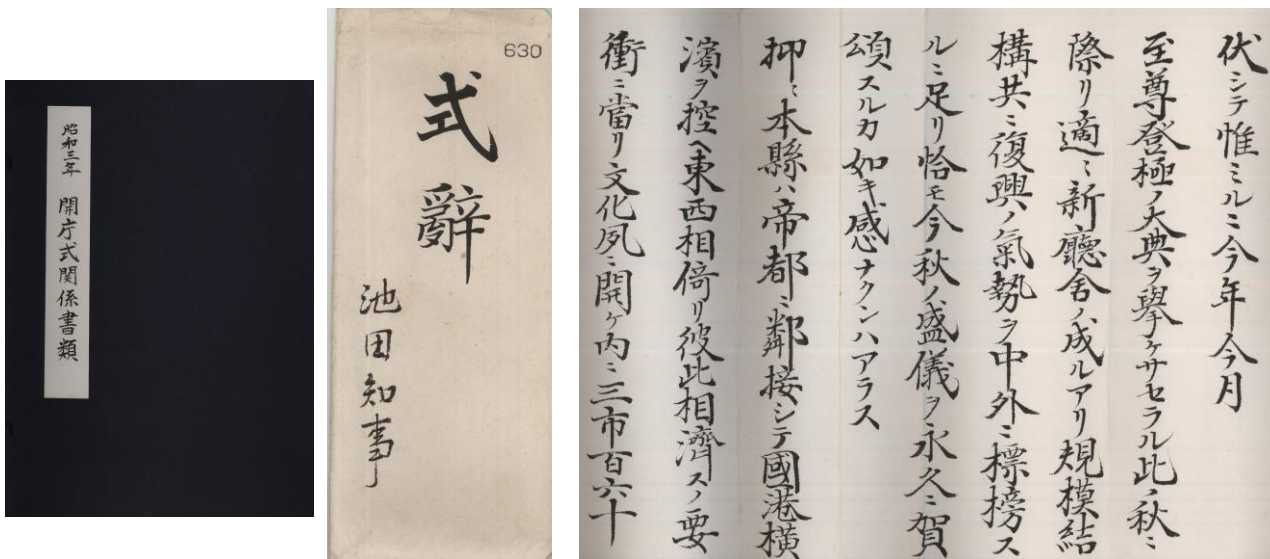 昭和三年 開庁式関係書類
630
式辭
池田知事
伏シテ惟ミルニ今年今月
至尊登極ノ大典ヲ擧ケサセラル此ノ秋ニ
際リ適ニ新廳舍ノ成ルアリ規模結
構共ニ復興ノ氣勢ヲ中外ニ標榜ス
ルニ足リ恰モ今秋ノ盛儀ヲ永久ニ賀
頌スルカ如キ感ナクンハアラス
抑ニ本縣ハ帝都ニ鄰接シテ國港橫
濱ヲ控ヘ東西相倚リ彼此相濟スノ要
衝ニ當リ文化夙ニ開ケ内ニ三市百六十